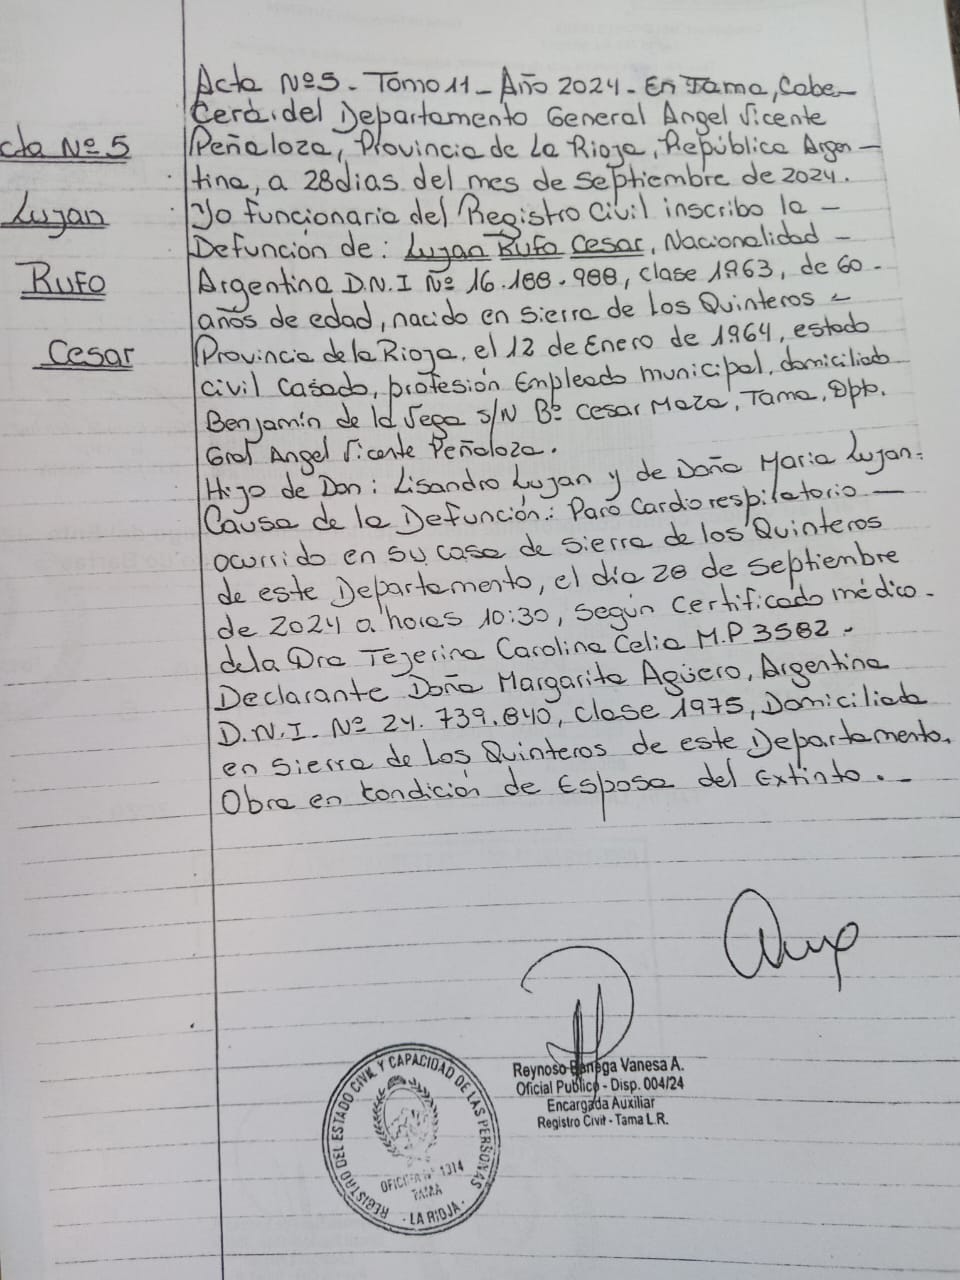 Acta Nº5. Tomo 11 - Año 2024 - En Tama, Cabe-
cera del Departamento General Angel Vicente
cta Nº 5
Peñaloza, Provincia de La Rioja, República Argen-
tina, a 28 dias del mes de septiembre de 2024.
Lujan
Yo funcionaria del Registro Civil inscribo la -
Defunción de: Lujan Rufo Cesar, Nacionalidad -
Rufo
Argentina D.N.I Nº 16.188.988, clase 1963, de 60.
años de edad, nacido en sierra de Los Quinteros -
Cesar
Provincia de la Rioja, el 12 de Enero de 1964, estado
civil casado, profesión Empleado municipal, domiciliado
Benjamín de la Vega s/N Bº Cesar Maza, Tama, Dpto.
Gral Angel Vicente Peñaloza.
Hijo de Don: Lisandro Lujan y de Doña Maria Lujan.
Causa de la Defunción: Paro Cardiorespilatorio -
ocurrido en su casa de sierra de los Quinteros
de este Departamento, el día 28 de septiembre
de 2024 a horas 10:30, según certificado médico.
dela Dra Tejerina Carolina Celia M.P 3582.
Declarante Doña Margarita Agüero, Argentina
D.N.I. Nº 24.739.840, Clase 1975, Domiciliada
en sierra de Los Quinteros de este Departamento.
Obra en condición de Esposa del Extinto. -
Reynoso Vanesa A.
Oficial Publico - Disp. 004/24
Encargada Auxiliar
Registro Civil - Tama L.R.
REGISTRO DEL ESTADO CIVIL Y CAPACIDAD DE LAS PERSONAS
OFICINA Nº 1314
TAMA
- LA RIOJA -